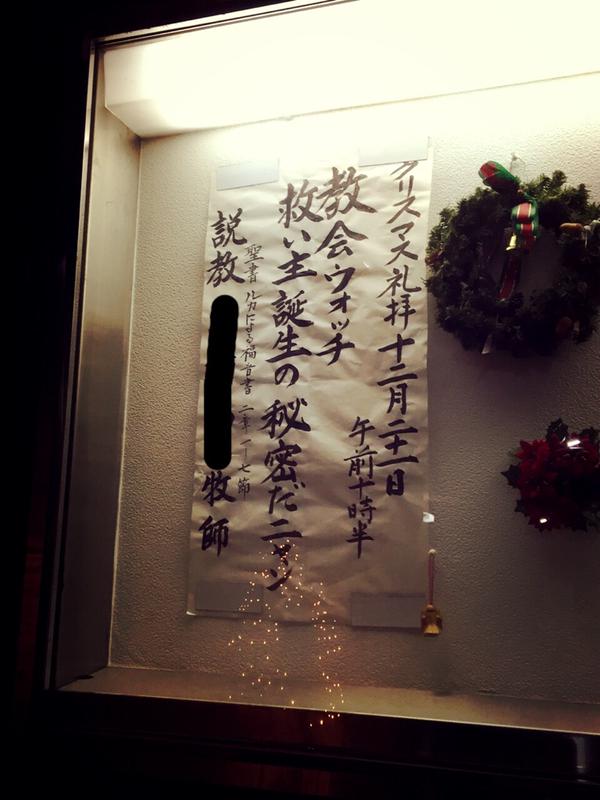 クリスマス礼拝 十二月二十一日
午前十時半
教会ウォッチ
救い主誕生の秘密だニャン
聖書 ルカによる福音書 二章 一-七節
説教 牧師